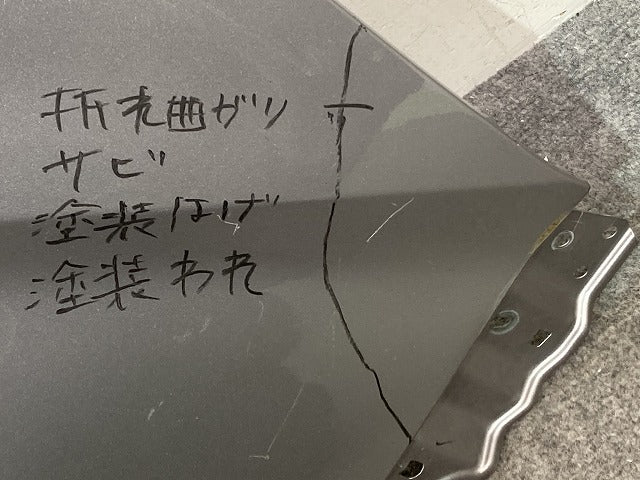 折れ曲ガリ
サビ
塗装はげ
塗装われ